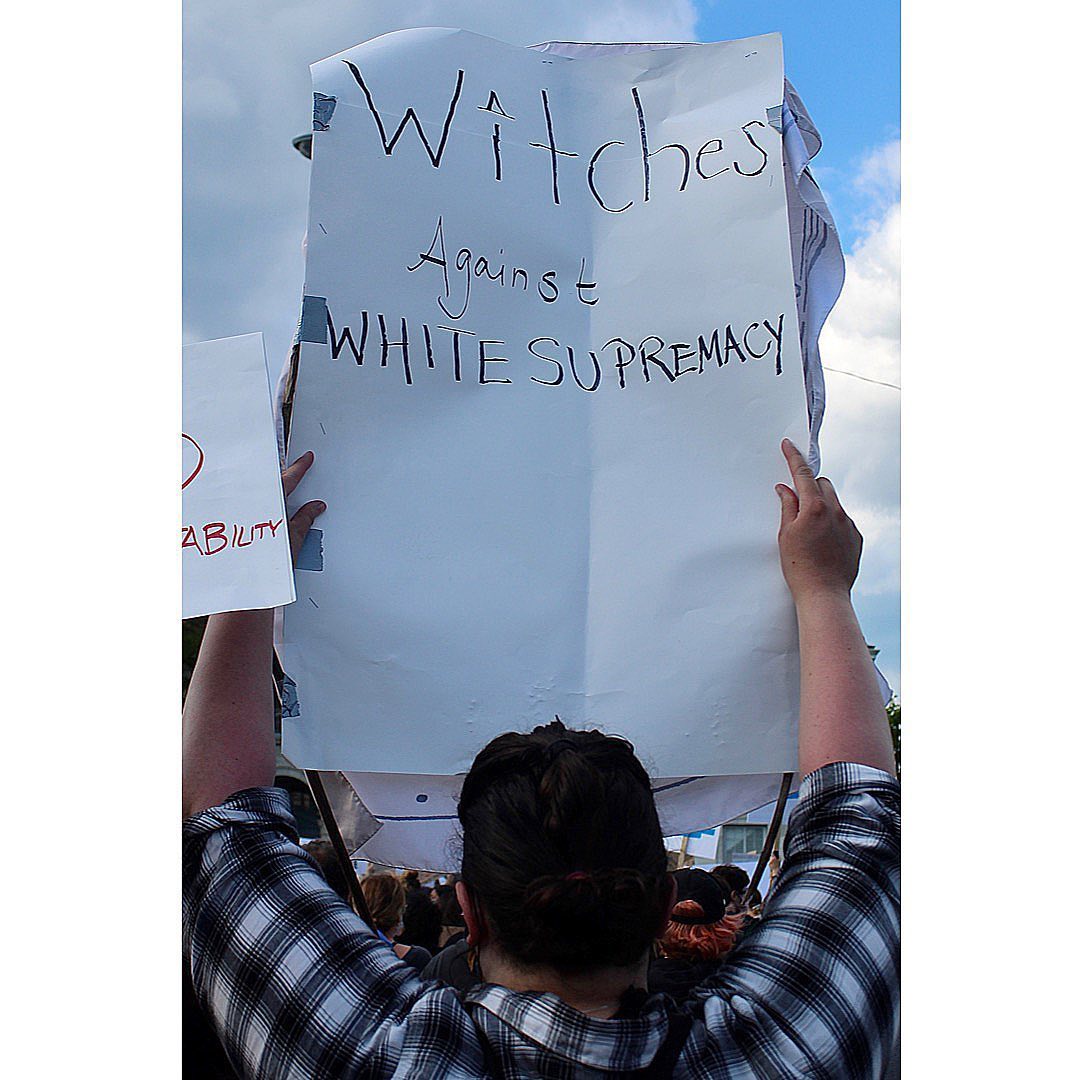 Witches
Against
WHITE SUPREMACY
ABILITY